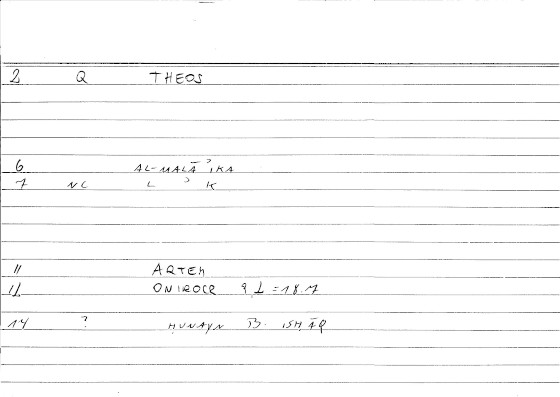 2 Q THEOS
6 AL-MALĀʾIKA
7 NC L ʾ K
11 ARTEM
12 ONIROCR 9 1 = 18.7
14 ? ḤUNAYN B. ISḤĀQ